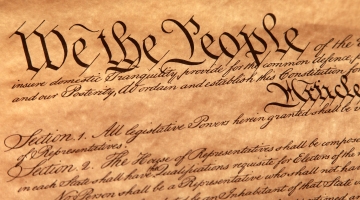 We the People of the
insure domestic Tranquility, provide for the common defence,
and our Posterity, do ordain and establish this Constitution
Article
Section 1. All legislative Powers herein granted shall be
of Representatives.
Section 2. The House of Representatives shall be compose
in each State shall have Qualifications requisite for Electors of the
No Person shall be a Representative who shall not have
be an Inhabitant of that State